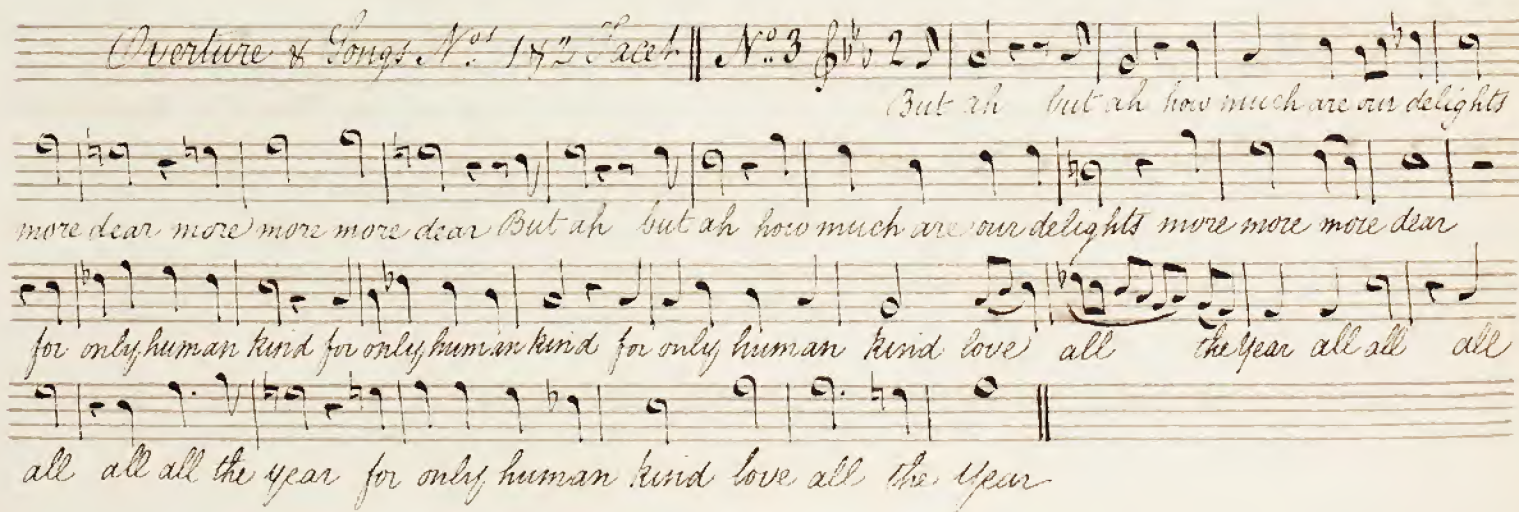 Overture & Songs Nos 1 & 2 Tacet N.o 3 2
But ah but ah how much are our delights
more dear more more more dear But ah but ah how much are our delights more more more dear
for only human kind for only human kind for only human kind love all the year all all all
all all all the year for only human kind love all the Year